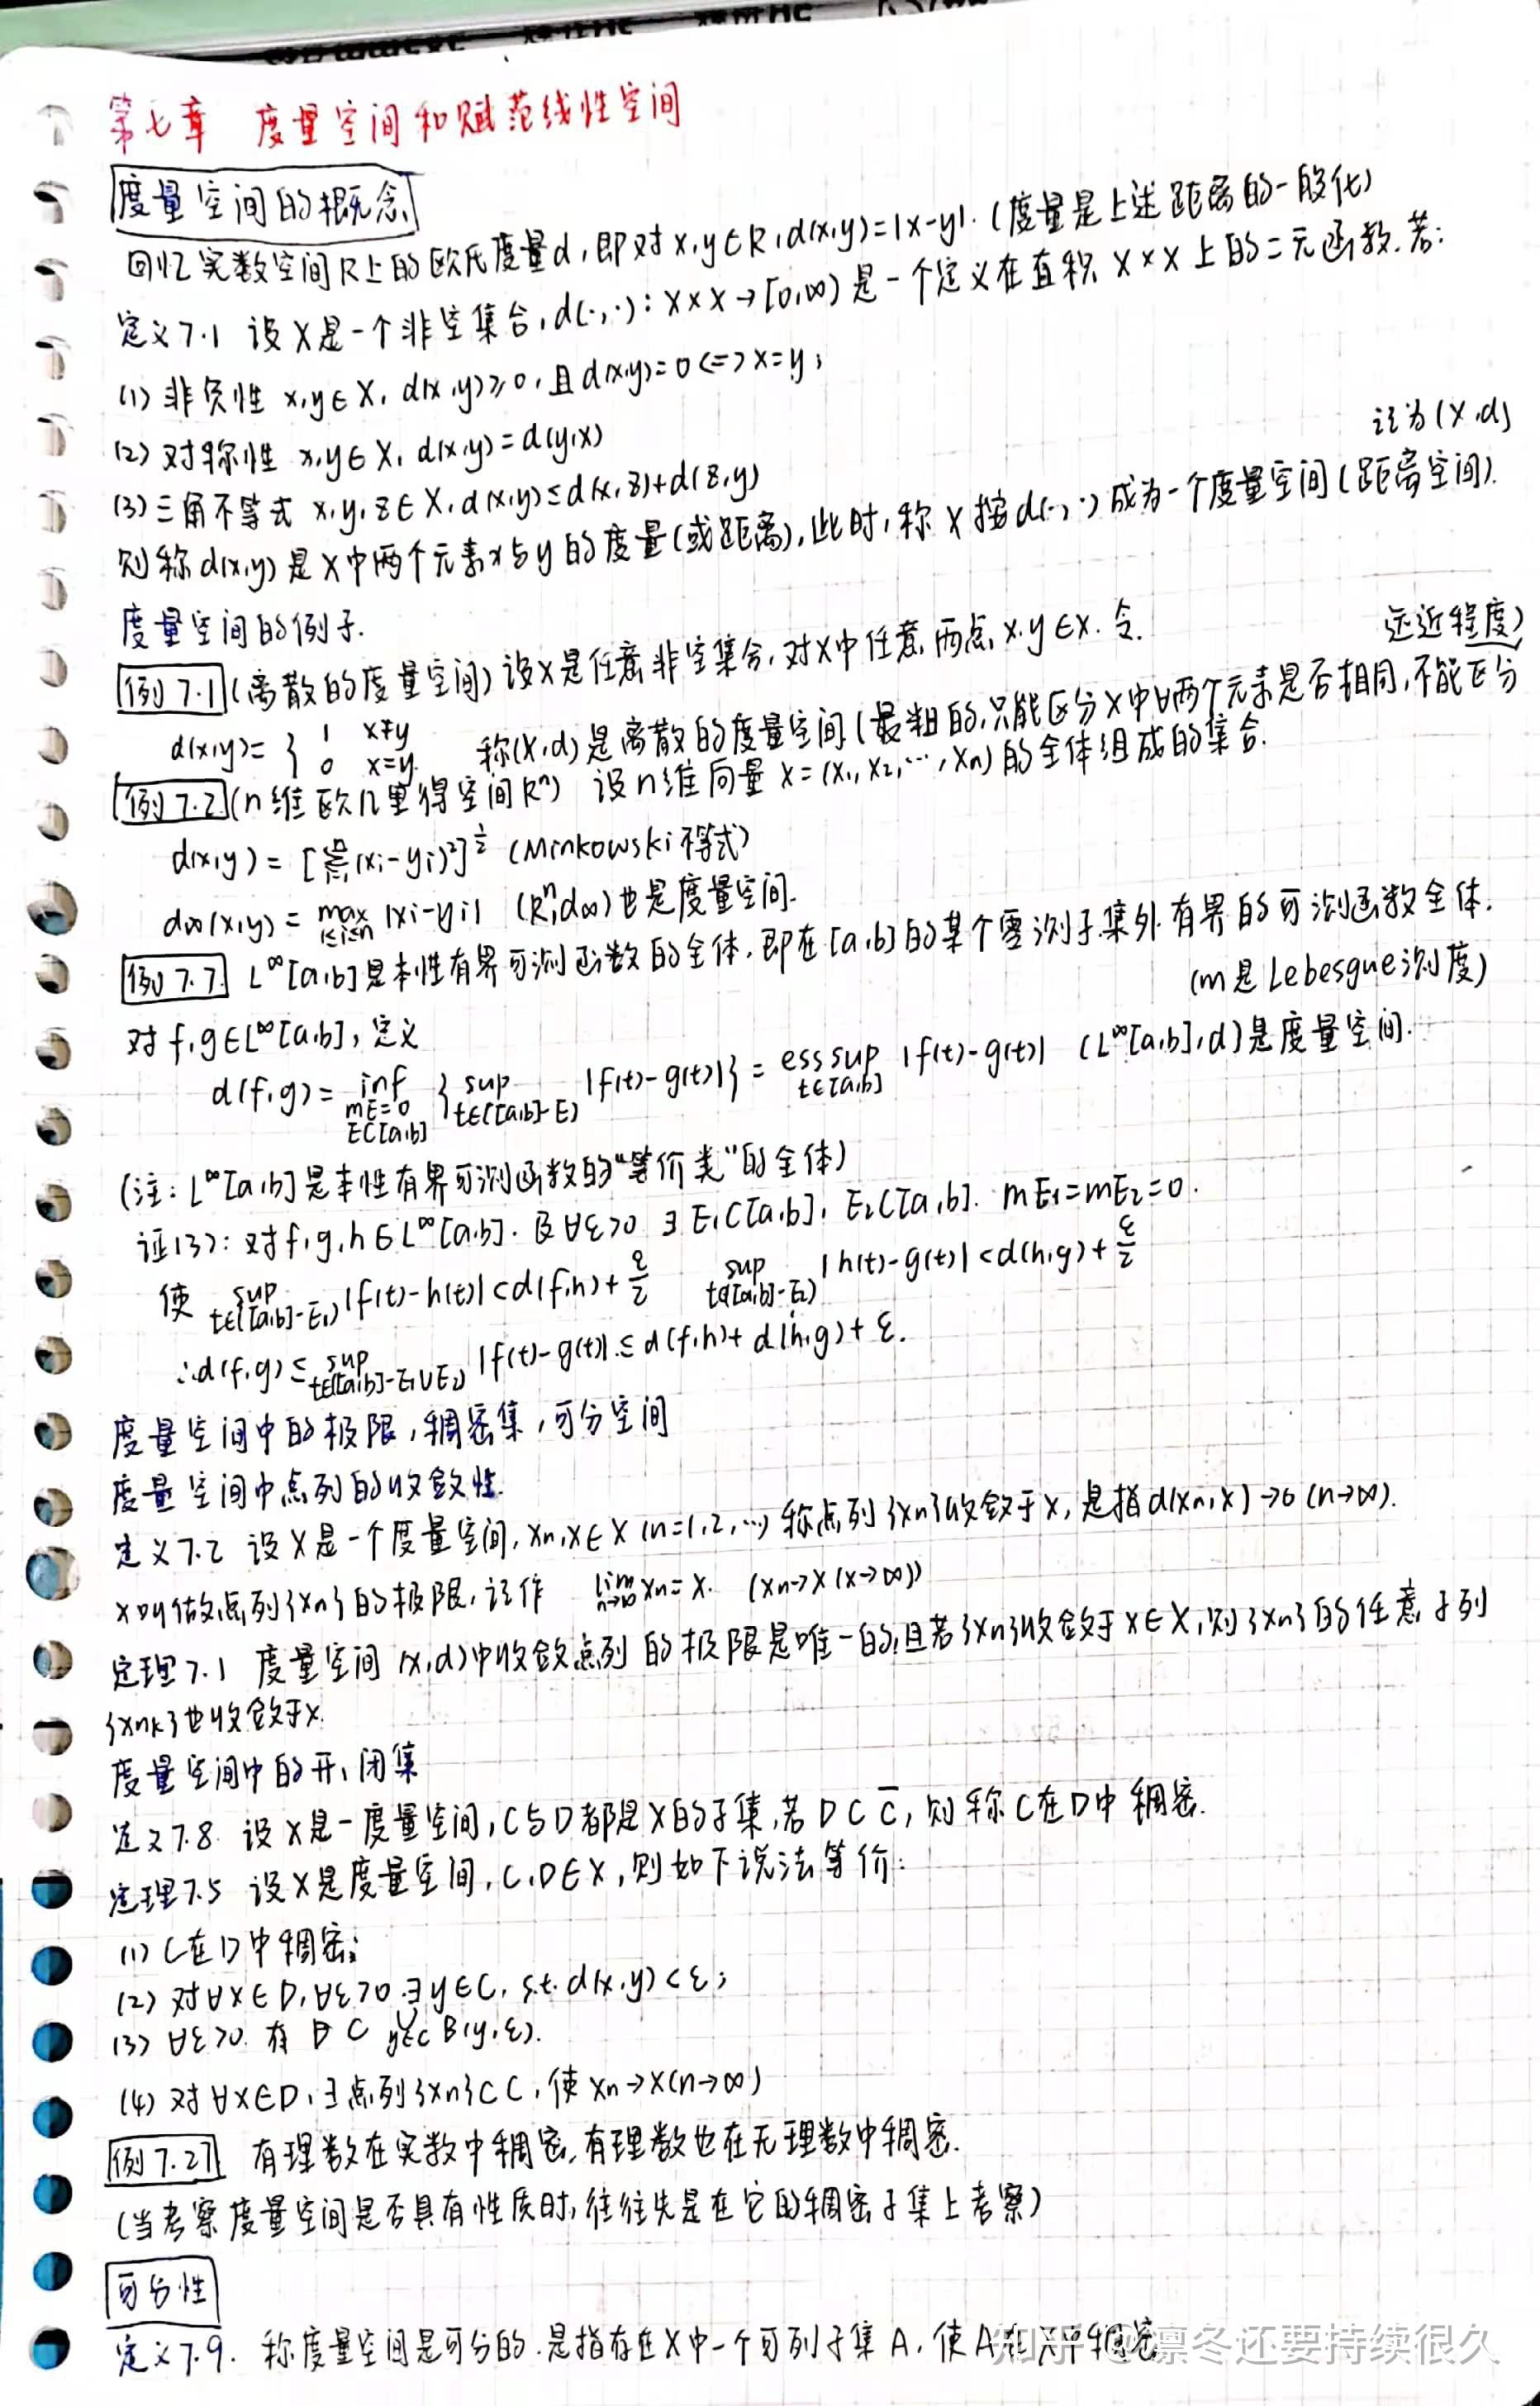 第七章 度量空间和赋范线性空间
度量空间的概念
回忆实数空间R上的欧氏度量d,即对x,y∈R,d(x,y)=|x-y|.(度量是上述距离的一般化)
定义7.1 设X是一个非空集合,d(·,·):X×X→[0,∞)是一个定义在直积X×X上的二元函数.若:
(1)非负性 x,y∈X, d(x,y)≥0,且d(x,y)=0<=>x=y;
(2)对称性 x,y∈X, d(x,y)=d(y,x)
(3)三角不等式 x,y,z∈X,d(x,y)≤d(x,z)+d(z,y)
记为(X,d)
则称d(x,y)是X中两个元素x与y的度量(或距离),此时,称X按d(·,·)成为一个度量空间(距离空间).
度量空间的例子.
例7.1(离散的度量空间)设X是任意非空集合,对X中任意两点x,y∈X.令.
d(x,y)={1 x≠y 0 x=y. 称(X,d)是离散的度量空间(最粗的,只能区分X中∀两个元素是否相同,不能区分
远近程度)
例7.2(n维欧几里得空间Rⁿ) 设n维向量x=(x₁,x₂,…,xn)的全体组成的集合.
d(x,y)=[∑ⁿᵢ₌₁(xi-yi)²]^½ (Minkowski不等式)
d∞(x,y)=max 1≤i≤n |xi-yi| (Rⁿ,d∞)也是度量空间.
例7.7 L^∞[a,b]是本性有界可测函数的全体,即在[a,b]的某个零测子集外有界的可测函数全体.
(m是Lebesgue测度)
对f,g∈L^∞[a,b],定义
d(f,g)=inf mE=0 E⊂[a,b] {sup t∈([a,b]-E) |f(t)-g(t)|}=ess sup t∈[a,b] |f(t)-g(t)| (L^∞[a,b],d)是度量空间.
(注:L^∞[a,b]是本性有界可测函数的“等价类”的全体)
证(3):对f,g,h∈L^∞[a,b].及∀ε>0 ∃E₁⊂[a,b], E₂⊂[a,b]. mE₁=mE₂=0.
使 sup t∈([a,b]-E₁) |f(t)-h(t)|<d(f,h)+ε/2 sup t∈([a,b]-E₂) |h(t)-g(t)|<d(h,g)+ε/2
∴d(f,g)≤sup t∈([a,b]-E₁∪E₂) |f(t)-g(t)|≤d(f,h)+d(h,g)+ε.
度量空间中的极限,稠密集,可分空间
度量空间中点列的收敛性.
定义7.2 设X是一个度量空间,xn,x∈X(n=1,2,…)称点列{xn}收敛于x,是指d(xn,x)→0(n→∞).
x叫做点列{xn}的极限,记作 lim n→∞ xn=x. (xn→x(x→∞))
定理7.1 度量空间(X,d)中收敛点列的极限是唯一的,且若{xn}收敛于x∈X,则{xn}的任意子列
{xnk}也收敛于x.
度量空间中的开、闭集
定义7.8. 设X是一度量空间,C与D都是X的子集,若D⊂C̄,则称C在D中稠密.
定理7.5 设X是度量空间,C,D∈X,则如下说法等价:
(1)C在D中稠密;
(2)对∀x∈D,∀ε>0.∃y∈C,s.t.d(x,y)<ε;
(3)∀ε>0.有D⊂∪y∈C B(y,ε).
(4)对∀x∈D,∃点列{xn}⊂C,使xn→x(n→∞)
例7.27 有理数在实数中稠密,有理数也在无理数中稠密.
(当考察度量空间是否具有性质时,往往先是在它的稠密子集上考察)
可分性
定义7.9. 称度量空间是可分的.是指存在X中一个可列子集A,使A在X中稠密
知乎 @凛冬还要持续很久